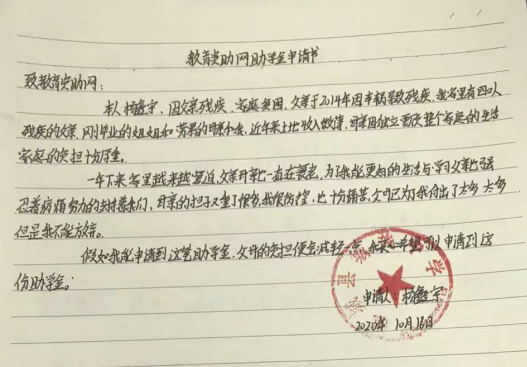 教育资助网助学金申请书
致教育资助网:
本人杨鑫宇、因父亲残疾、家庭贫困,父亲于2014年因车祸导致残疾,我家里有四口人
残疾的父亲,刚毕业的姐姐和劳累的母亲和我,近年来土地收入微薄,母亲因独立要支整个家庭的生活
家庭的负担十分严重。
一年下来,家里越来越窘迫,父亲
为了我能更好的生活与学习父亲也强
忍着病痛努力的
母亲的担子又重了很多,我很伤心,也十分痛苦,父母已为了我付出了太多太多
但是我不能放弃。
假如我能申请到这笔助学金,父母的负担便会减轻一点,
希望可以申请到这
份助学金。
申请人:杨鑫宇
2020年10月16日